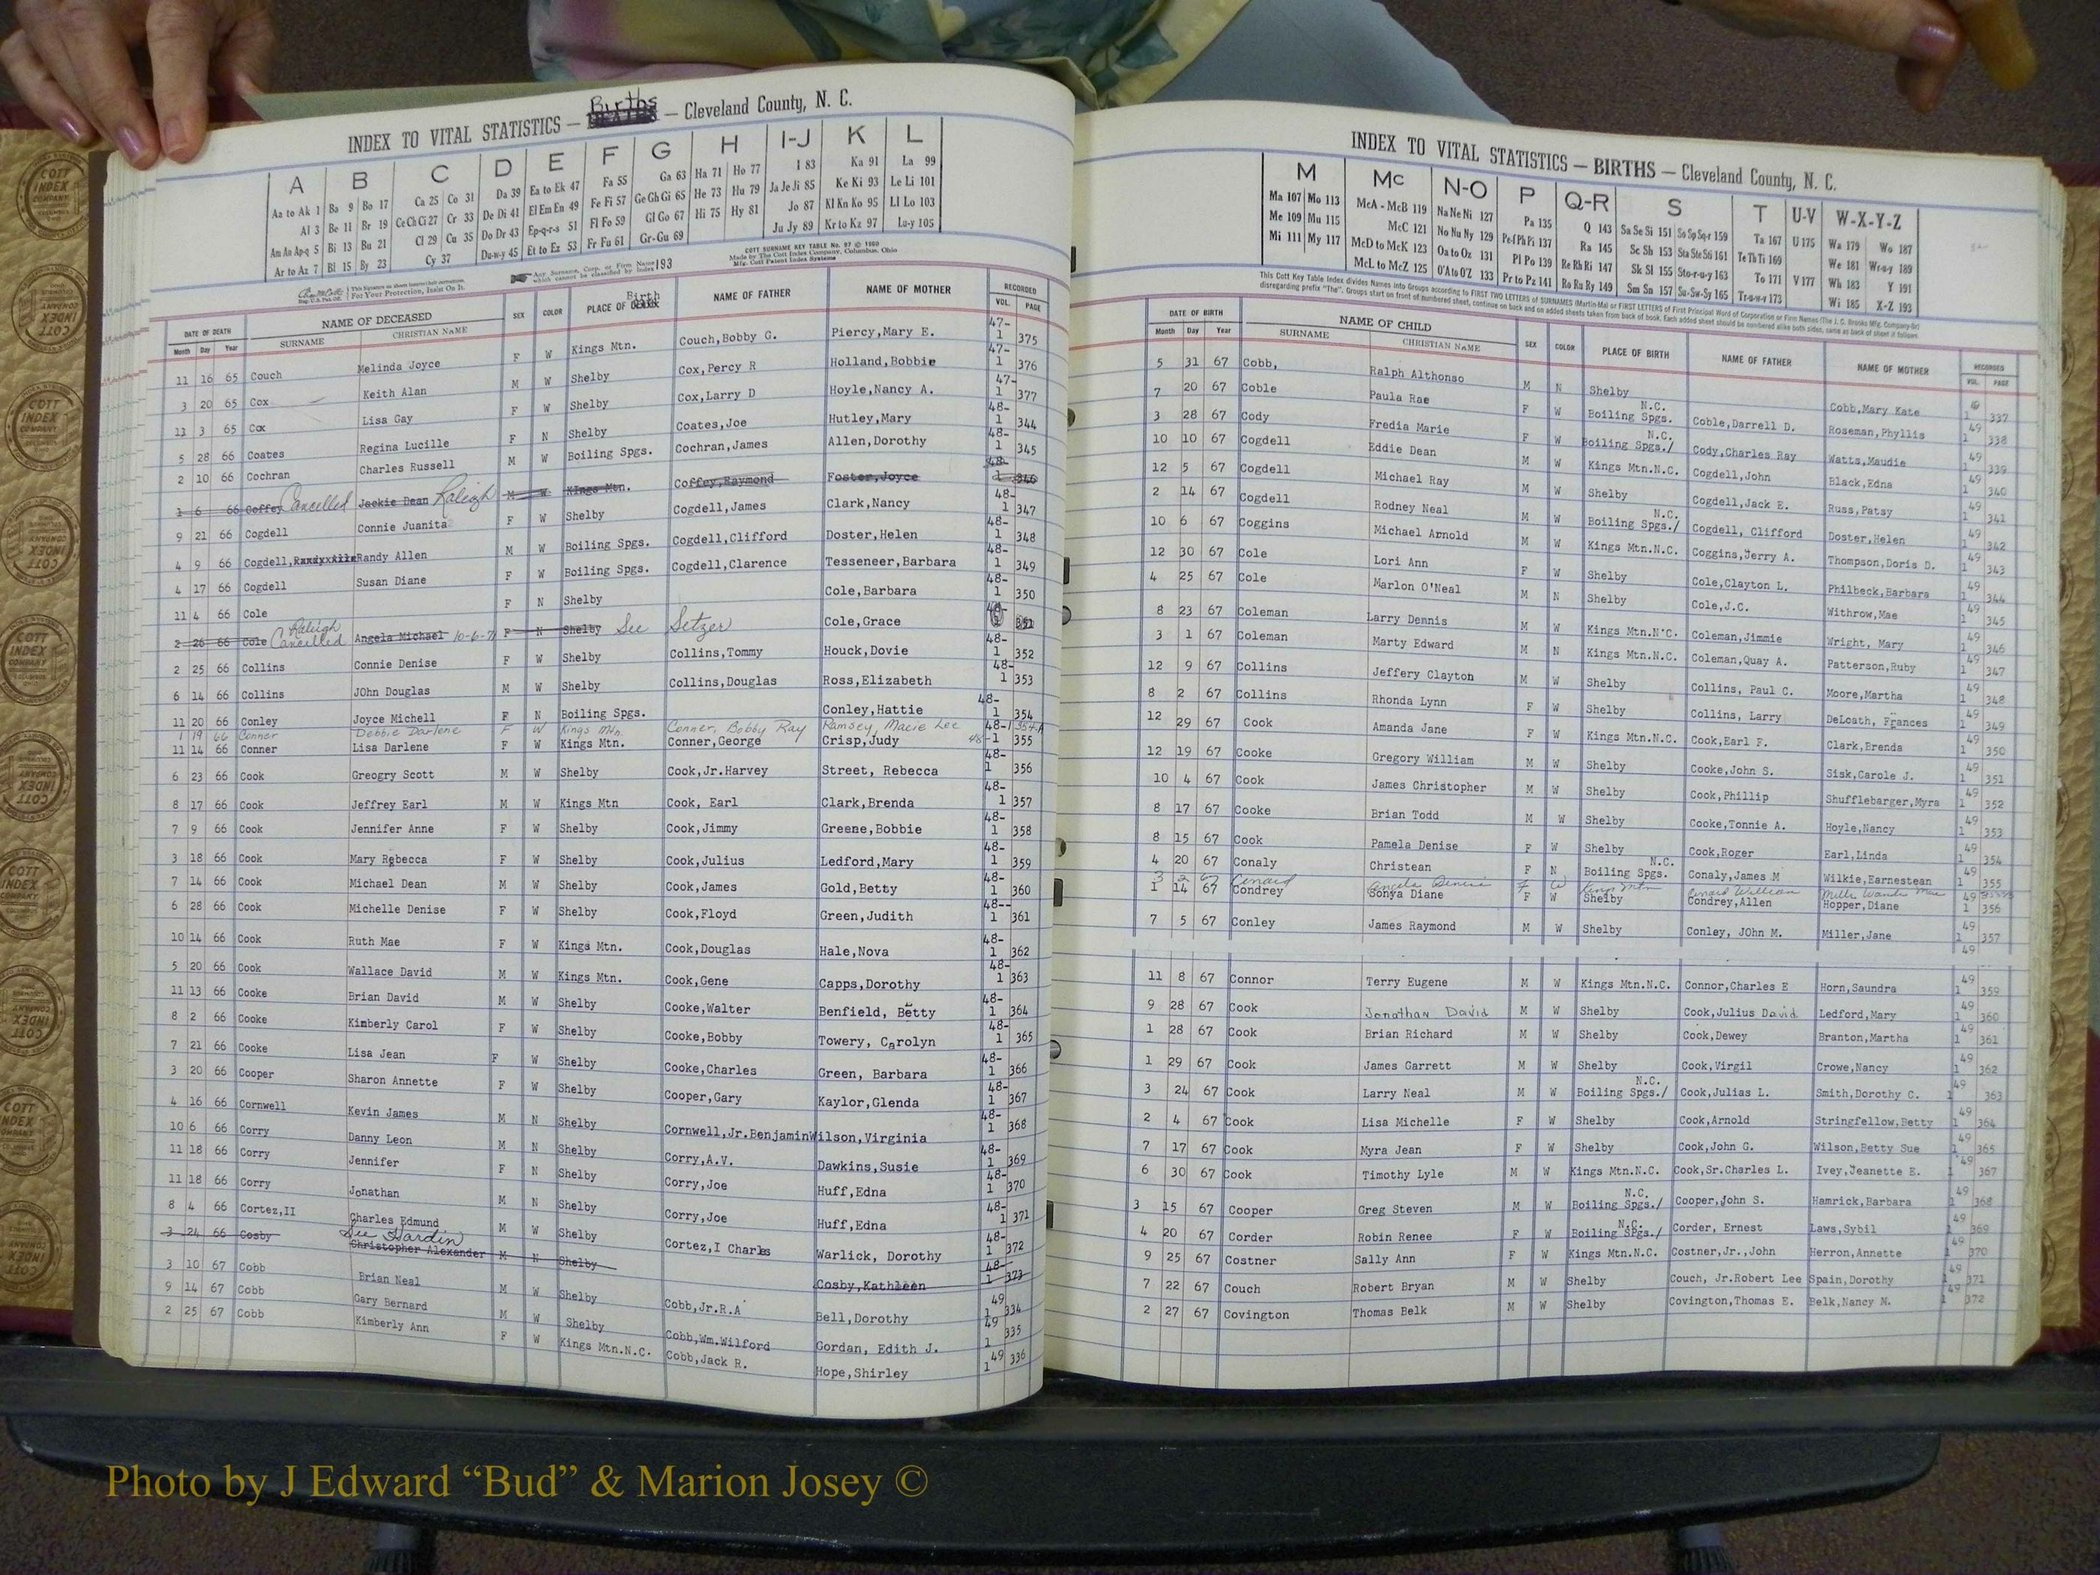 INDEX TO VITAL STATISTICS — Births — Cleveland County, N. C.
A B C D E F G H I-J K L
Aa to Ak 1 Ba 9 Bo 17 Ca 25 Co 31 Da 39 Ea to Ek 47 Fa 55 Ga 63 Ha 71 Ho 77 I 83 Ka 91 La 99
Al 3 Be 11 Br 19 Ce Ch Ci 27 Cr 33 De Di 41 El Em En 49 Fe Fi 57 Ge Gh Gi 65 He 73 Hu 79 Ja Je Ji 85 Ke Ki 93 Le Li 101
Am An Ap-q 5 Bi 13 Bu 21 Cl 29 Cu 35 Do Dr 43 Ep-q-r-s 51 Fl Fo 59 Gl Go 67 Hi 75 Hy 81 Jo 87 Kl Kn Ko 95 Ll Lo 103
Ar to Az 7 Bl 15 By 23 Cy 37 Du-w-y 45 Et to Ez 53 Fr Fu 61 Gr-Gu 69 Ju Jy 89 Kr to Kz 97 Lu-y 105
COTT SURNAME KEY TABLE No. 97 © 1960
Made by The Cott Index Company, Columbus, Ohio
Mfg. Cott Patent Index Systems
For Your Protection, Insist On It.
Any Surname, Corp. or Firm Name which cannot be classified by Index 193
DATE OF DEATH NAME OF DECEASED SEX COLOR PLACE OF Birth NAME OF FATHER NAME OF MOTHER RECORDED
Month Day Year SURNAME CHRISTIAN NAME VOL. PAGE
11 16 65 Couch Melinda Joyce F W Kings Mtn. Couch,Bobby G. Piercy,Mary E. 47-1 375
3 20 65 Cox Keith Alan M W Shelby Cox,Percy R Holland,Bobbie 47-1 376
11 3 65 Cox Lisa Gay F W Shelby Cox,Larry D Hoyle,Nancy A. 47-1 377
5 28 66 Coates Regina Lucille F N Shelby Coates,Joe Hutley,Mary 48-1 344
2 10 66 Cochran Charles Russell M W Boiling Spgs. Cochran,James Allen,Dorothy 48-1 345
1 6 66 Coffey Cancelled Jackie Dean Raleigh M W Kings Mtn. Coffey,Raymond Foster,Joyce 48-1 346
9 21 66 Cogdell Connie Juanita F W Shelby Cogdell,James Clark,Nancy 48-1 347
4 9 66 Cogdell, Randy Allen M W Boiling Spgs. Cogdell,Clifford Doster,Helen 48-1 348
4 17 66 Cogdell Susan Diane F W Boiling Spgs. Cogdell,Clarence Tesseneer,Barbara 48-1 349
11 4 66 Cole F N Shelby Cole,Barbara 48-1 350
2 26 66 Cole Raleigh Cancelled Angela Michael 10-6-7 F N Shelby See Setzer Cole,Grace 351
2 25 66 Collins Connie Denise F W Shelby Collins,Tommy Houck,Dovie 48-1 352
6 14 66 Collins JOhn Douglas M W Shelby Collins,Douglas Ross,Elizabeth 48-1 353
11 20 66 Conley Joyce Michell F N Boiling Spgs. Conley,Hattie 48-1 354
1 19 66 Conner Debbie Darlene F W Kings Mtn. Conner, Bobby Ray Ramsey, Macie Lee 48-1 354A
11 14 66 Conner Lisa Darlene F W Kings Mtn. Conner,George Crisp,Judy 48-1 355
6 23 66 Cook Greogry Scott M W Shelby Cook,Jr.Harvey Street, Rebecca 48-1 356
8 17 66 Cook Jeffrey Earl M W Kings Mtn Cook, Earl Clark,Brenda 48-1 357
7 9 66 Cook Jennifer Anne F W Shelby Cook,Jimmy Greene,Bobbie 48-1 358
3 18 66 Cook Mary Rebecca F W Shelby Cook,Julius Ledford,Mary 48-1 359
7 14 66 Cook Michael Dean M W Shelby Cook,James Gold,Betty 48-1 360
6 28 66 Cook Michelle Denise F W Shelby Cook,Floyd Green,Judith 48--1 361
10 14 66 Cook Ruth Mae F W Kings Mtn. Cook,Douglas Hale,Nova 48-1 362
5 20 66 Cook Wallace David M W Kings Mtn. Cook,Gene Capps,Dorothy 48-1 363
11 13 66 Cooke Brian David M W Shelby Cooke,Walter Benfield, Betty 48-1 364
8 2 66 Cooke Kimberly Carol F W Shelby Cooke,Bobby Towery, Carolyn 48-1 365
7 21 66 Cooke Lisa Jean F W Shelby Cooke,Charles Green, Barbara 48-1 366
3 20 66 Cooper Sharon Annette F W Shelby Cooper,Gary Kaylor,Glenda 48-1 367
4 16 66 Cornwell Kevin James M N Shelby Cornwell,Jr.Benjamin Wilson,Virginia 48-1 368
10 6 66 Corry Danny Leon M N Shelby Corry,A.V. Dawkins,Susie 48-1 369
11 18 66 Corry Jennifer F N Shelby Corry,Joe Huff,Edna 48-1 370
11 18 66 Corry Jonathan M N Shelby Corry,Joe Huff,Edna 48-1 371
8 4 66 Cortez,II Charles Edmund M W Shelby Cortez,I Charles Warlick, Dorothy 48-1 372
3 24 66 Cosby See Hardin Christopher Alexander M N Shelby Cosby,Kathleen 48-1 373
3 10 67 Cobb Brian Neal M W Shelby Cobb,Jr.R.A Bell,Dorothy 49 1 334
9 14 67 Cobb Gary Bernard M W Shelby Cobb,Wm.Wilford Gordan, Edith J. 49 1 335
2 25 67 Cobb Kimberly Ann F W Kings Mtn.N.C. Cobb,Jack R. Hope,Shirley 49 1 336
INDEX TO VITAL STATISTICS — BIRTHS — Cleveland County, N. C.
M Mc N-O P Q-R S T U-V W-X-Y-Z
Ma 107 Mo 113 McA - McB 119 Na Ne Ni 127 Pa 135 Q 143 Sa Se Si 151 So Sp Sq-r 159 Ta 167 U 175 Wa 179 Wo 187
Me 109 Mu 115 McC 121 No Nu Ny 129 Pe-f Ph Pi 137 Ra 145 Sc Sh 153 Sta Ste Sti 161 Te Th Ti 169 We 181 Wr-u-y 189
Mi 111 My 117 McD to McK 123 Oa to Oz 131 Pl Po 139 Re Rh Ri 147 Sk Sl 155 Sto-r-u-y 163 To 171 V 177 Wh 183 Y 191
McL to McZ 125 O'A to O'Z 133 Pr to Pz 141 Ro Ru Ry 149 Sm Sn 157 Su-Sw-Sy 165 Tr-u-w-y 173 Wi 185 X-Z 193
This Cott Key Table Index divides Names into Groups according to FIRST TWO LETTERS of SURNAMES (Martin-Ma) or FIRST LETTERS of First Principal Word of Corporation or Firm Names (The J. C. Brooks Mfg. Company-Br)
disregarding prefix "The". Groups start on front of numbered sheet, continue on back and on added sheets taken from back of book. Each added sheet should be numbered alike both sides, same as back of sheet it follows.
DATE OF BIRTH NAME OF CHILD SEX COLOR PLACE OF BIRTH NAME OF FATHER NAME OF MOTHER RECORDED
Month Day Year SURNAME CHRISTIAN NAME VOL. PAGE
5 31 67 Cobb, Ralph Althonso M N Shelby Cobb,Mary Kate 1 337
7 20 67 Coble Paula Rae F W Boiling Spgs. N.C. Coble,Darrell D. Roseman,Phyllis 49 1 338
3 28 67 Cody Fredia Marie F W Boiling Spgs./ N.C. Cody,Charles Ray Watts,Maudie 49 1 339
10 10 67 Cogdell Eddie Dean M W Kings Mtn.N.C. Cogdell,John Black,Edna 49 1 340
12 5 67 Cogdell Michael Ray M W Shelby Cogdell,Jack E. Russ,Patsy 49 1 341
2 14 67 Cogdell Rodney Neal M W Boiling Spgs./ N.C. Cogdell, Clifford Doster,Helen 49 1 342
10 6 67 Coggins Michael Arnold M W Kings Mtn.N.C. Coggins,Jerry A. Thompson,Doris D. 49 1 343
12 30 67 Cole Lori Ann F W Shelby Cole,Clayton L. Philbeck,Barbara 49 1 344
4 25 67 Cole Marlon O'Neal M N Shelby Cole,J.C. Withrow,Mae 49 1 345
8 23 67 Coleman Larry Dennis M W Kings Mtn.N.C. Coleman,Jimmie Wright, Mary 49 1 346
3 1 67 Coleman Marty Edward M N Kings Mtn.N.C. Coleman,Quay A. Patterson,Ruby 49 1 347
12 9 67 Collins Jeffery Clayton M W Shelby Collins, Paul C. Moore,Martha 49 1 348
8 2 67 Collins Rhonda Lynn F W Shelby Collins, Larry DeLoath, Frances 49 1 349
12 29 67 Cook Amanda Jane F W Kings Mtn.N.C. Cook,Earl F. Clark,Brenda 49 1 350
12 19 67 Cooke Gregory William M W Shelby Cooke,John S. Sisk,Carole J. 49 1 351
10 4 67 Cook James Christopher M W Shelby Cook,Phillip Shufflebarger,Myra 49 1 352
8 17 67 Cooke Brian Todd M W Shelby Cooke,Tonnie A. Hoyle,Nancy 49 1 353
8 15 67 Cook Pamela Denise F W Shelby Cook,Roger Earl,Linda 49 1 354
4 20 67 Conaly Christean F N Boiling Spgs. N.C. Conaly,James M Wilkie,Earnestean 49 1 355
3 2 67 Conard Angela Denise F W Kings Mtn Conard William Mills Wanda Mae 49
1 14 67 Condrey Sonya Diane F W Shelby Condrey,Allen Hopper,Diane 1 356
7 5 67 Conley James Raymond M W Shelby Conley, JOhn M. Miller,Jane 49 1 357
49
11 8 67 Connor Terry Eugene M W Kings Mtn.N.C. Connor,Charles E Horn,Saundra 49 1 359
9 28 67 Cook Jonathan David M W Shelby Cook,Julius David Ledford,Mary 49 1 360
1 28 67 Cook Brian Richard M W Shelby Cook,Dewey Branton,Martha 49 1 361
1 29 67 Cook James Garrett M W Shelby Cook,Virgil Crowe,Nancy 49 1 362
3 24 67 Cook Larry Neal M W Boiling Spgs./ N.C. Cook,Julias L. Smith,Dorothy C. 49 1 363
2 4 67 Cook Lisa Michelle F W Shelby Cook,Arnold Stringfellow,Betty 49 1 364
7 17 67 Cook Myra Jean F W Shelby Cook,John G. Wilson,Betty Sue 49 1 365
6 30 67 Cook Timothy Lyle M W Kings Mtn.N.C. Cook,Sr.Charles L. Ivey,Jeanette E. 49 1 367
3 15 67 Cooper Greg Steven M W Boiling Spgs./ N.C. Cooper,John S. Hamrick,Barbara 49 1 368
4 20 67 Corder Robin Renee F W Boiling Spgs./ N.C. Corder, Ernest Laws,Sybil 49 1 369
9 25 67 Costner Sally Ann F W Kings Mtn.N.C. Costner,Jr.,John Herron,Annette 49 1 370
7 22 67 Couch Robert Bryan M W Shelby Couch, Jr.Robert Lee Spain,Dorothy 49 1 371
2 27 67 Covington Thomas Belk M W Shelby Covington,Thomas E. Belk,Nancy M. 49 1 372
Photo by J Edward “Bud” & Marion Josey ©